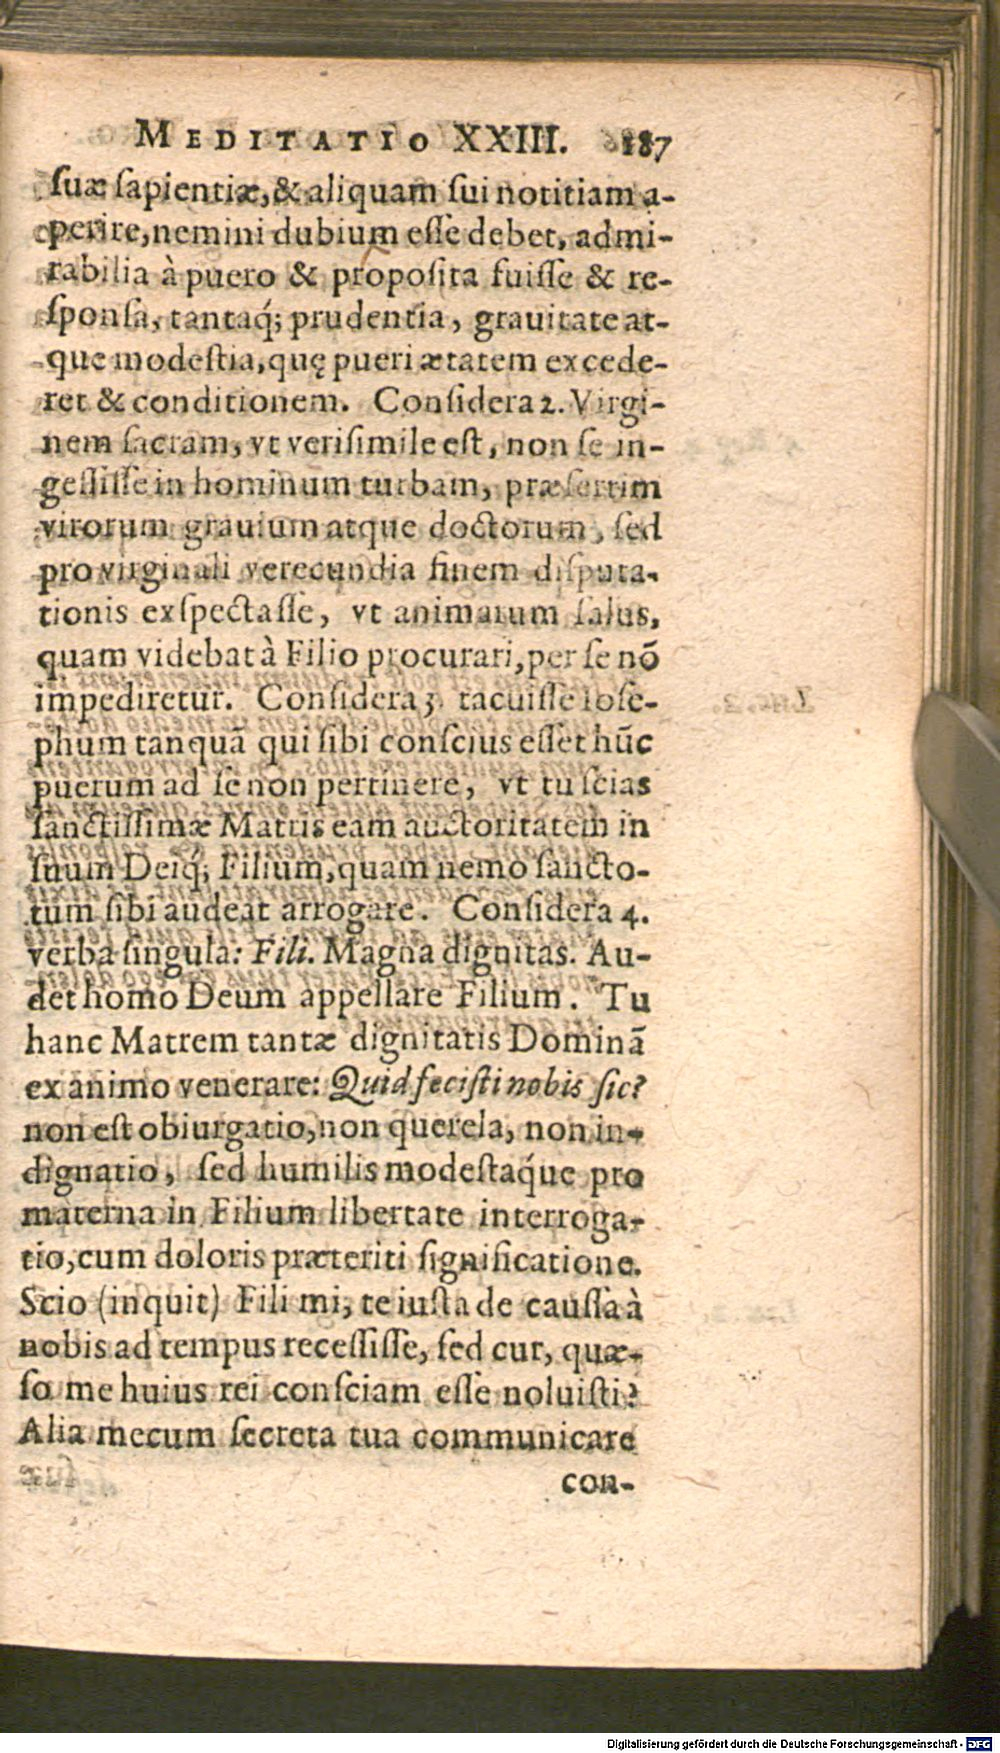 MEDITATIO XXIII. 187
ſuæ ſapientiæ, & aliquam ſui notitiam a-
perire, nemini dubium eſſe debet, admi-
rabilia à puero & propoſita fuiſſe & re-
ſponſa, tantaq́; prudentia, grauitate at-
que modeſtia, quę pueri ætatem excede-
ret & conditionem. Conſidera 2. Virgi-
nem ſacram, vt veriſimile eſt, non ſe in-
geſſiſſe in hominum turbam, præſertim
virorum grauium atque doctorum, ſed
pro virginali verecundia finem diſputa-
tionis exſpectaſſe, vt animarum ſalus,
quam videbat à Filio procurari, per ſe nõ
impediretur. Conſidera 3. tacuiſſe Ioſe-
phum tanquã qui ſibi conſcius eſſet hũc
puerum ad ſe non pertinere, vt tu ſcias
ſanctiſſimæ Matris eam auctoritatem in
ſuum Deiq́; Filium, quam nemo ſancto-
rum ſibi audeat arrogare. Conſidera 4.
verba ſingula: Fili. Magna dignitas. Au-
det homo Deum appellare Filium. Tu
hanc Matrem tantæ dignitatis Dominã
ex animo venerare: Quid feciſti nobis ſic?
non eſt obiurgatio, non querela, non in-
dignatio, ſed humilis modeſtaq́ue pro
materna in Filium libertate interroga-
tio, cum doloris præteriti ſignificatione.
Scio (inquit) Fili mi, te iuſta de cauſſa à
nobis ad tempus receſſiſſe, ſed cur, quæ-
ſo me huius rei conſciam eſſe noluiſti?
Alia mecum ſecreta tua communicare
con-
Digitalisierung gefördert durch die Deutsche Forschungsgemeinschaft - DFG